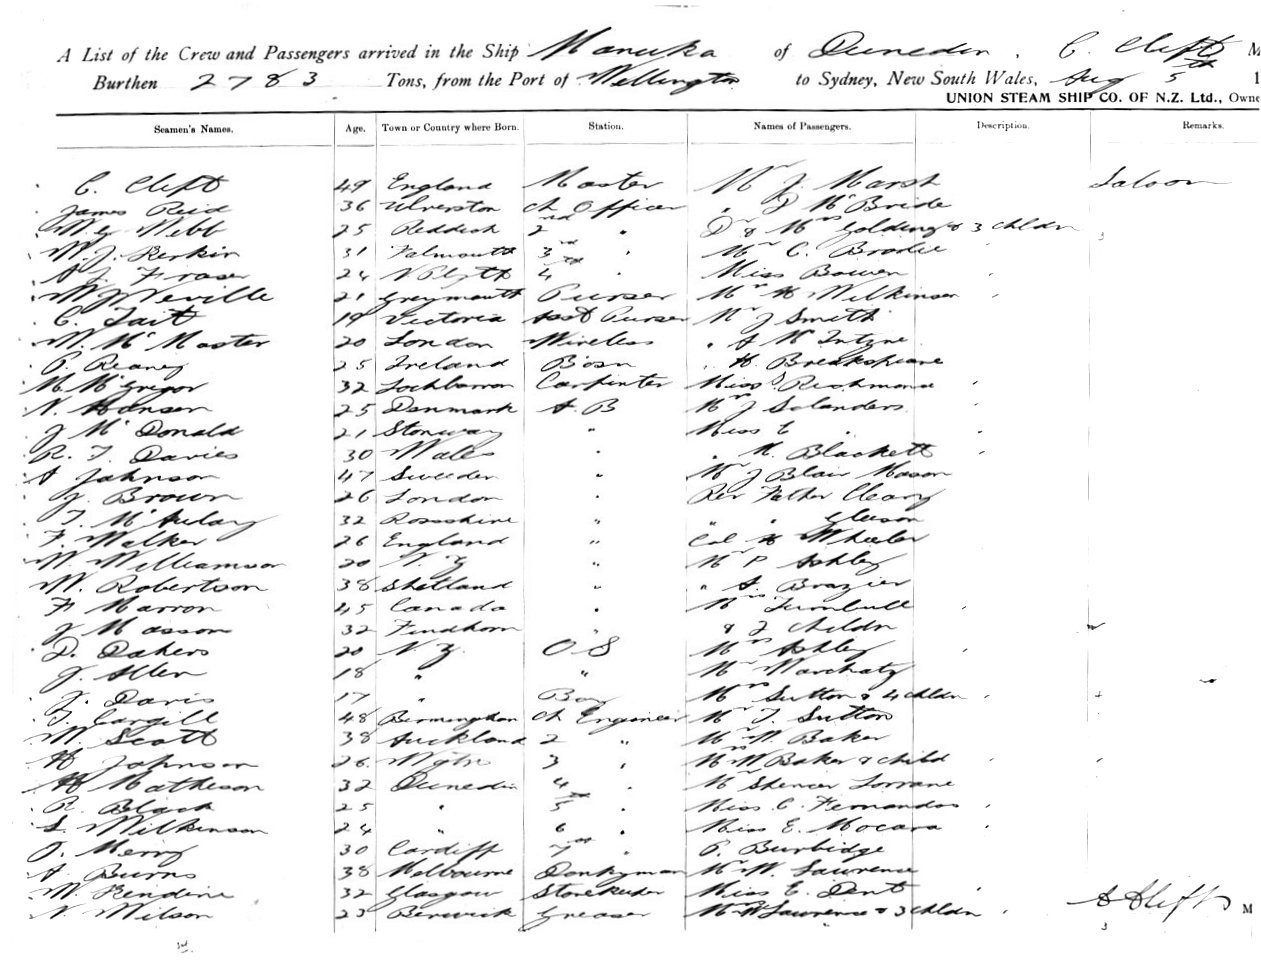 A List of the Crew and Passengers arrived in the Ship Manuka of Dunedin, C. Clift M
Burthen 2783 Tons, from the Port of Wellington to Sydney, New South Wales, Aug 5th 1
UNION STEAM SHIP CO. OF N.Z. Ltd., Owne
Seamen's Names. Age. Town or Country where Born. Station. Names of Passengers. Description. Remarks.
C. Clift 49 England Master Mr J. Marsh Saloon
James Reid 36 Ulverston Ch Officer " D McBride
W G Webb 25 Reddish 2nd " Dr & Mrs Golding & 3 chldn 3
W. J. Perkin 31 Falmouth 3rd " Mr C. Brodie
A J. Fraser 24 N Plyth 4th " Miss Bowen
W J Neville 21 Greymouth Purser Mrs H Wilkinson
C. Tait 19 Victoria Asst Purser Mr J Smith
W. McMaster 20 London Wireless " A McIntyre
P. Reaney 25 Ireland Bosn " H. Breakspeare
M McGregor 32 Carpenter Miss Richmond
N. Hansen 25 Denmark A. B Mrs J Solanders
J McDonald 21 " Miss E "
R. T. Davies 30 Wales " " M. Blackett
A Johnson 47 Sweden " Mr J Blair Mason
J. Brown 26 London " Rev Father Cleary
T. McAulay 32 Rossshire " " " Gleeson
F. Walker 26 England " Col H Wheeler
W. Williamson 20 N. Z " Mr P Ashley
W. Robertson 38 Shetland " " A. Brazier
F Marron 45 Canada " Mrs Turnbull
J Masson 32 Findhorn " & 2 Childn
D. Dakers 20 N Z. O S Mrs Ashley
J. Allen 18 " " Mr
J. Davis 17 " Boy Mrs Sutton & 4 chldn
T. Cargill 48 Birmingham Ch Engineer Mr T. Sutton
W. Scott 38 Auckland 2 " Mr W. Baker
H Johnson 26 Wgtn 3 " Mrs W Baker & child
H Matheson 32 Dunedin 4 " Mr Spencer Lorraine
R. Black 25 " 5th " Miss C. Fernandos
S. Wilkinson 24 " 6 " Miss E. Mocara
J. Merry 30 Cardiff 7th " P. Burbidge
A. Burns 38 Melbourne Donkyman Mr W. Lawrence
W. Rendine 32 Glasgow Storekeeper Miss E. Dent
N Wilson 23 Berwick Greaser Mrs W Lawrence & 3 chldn 3 Clift M